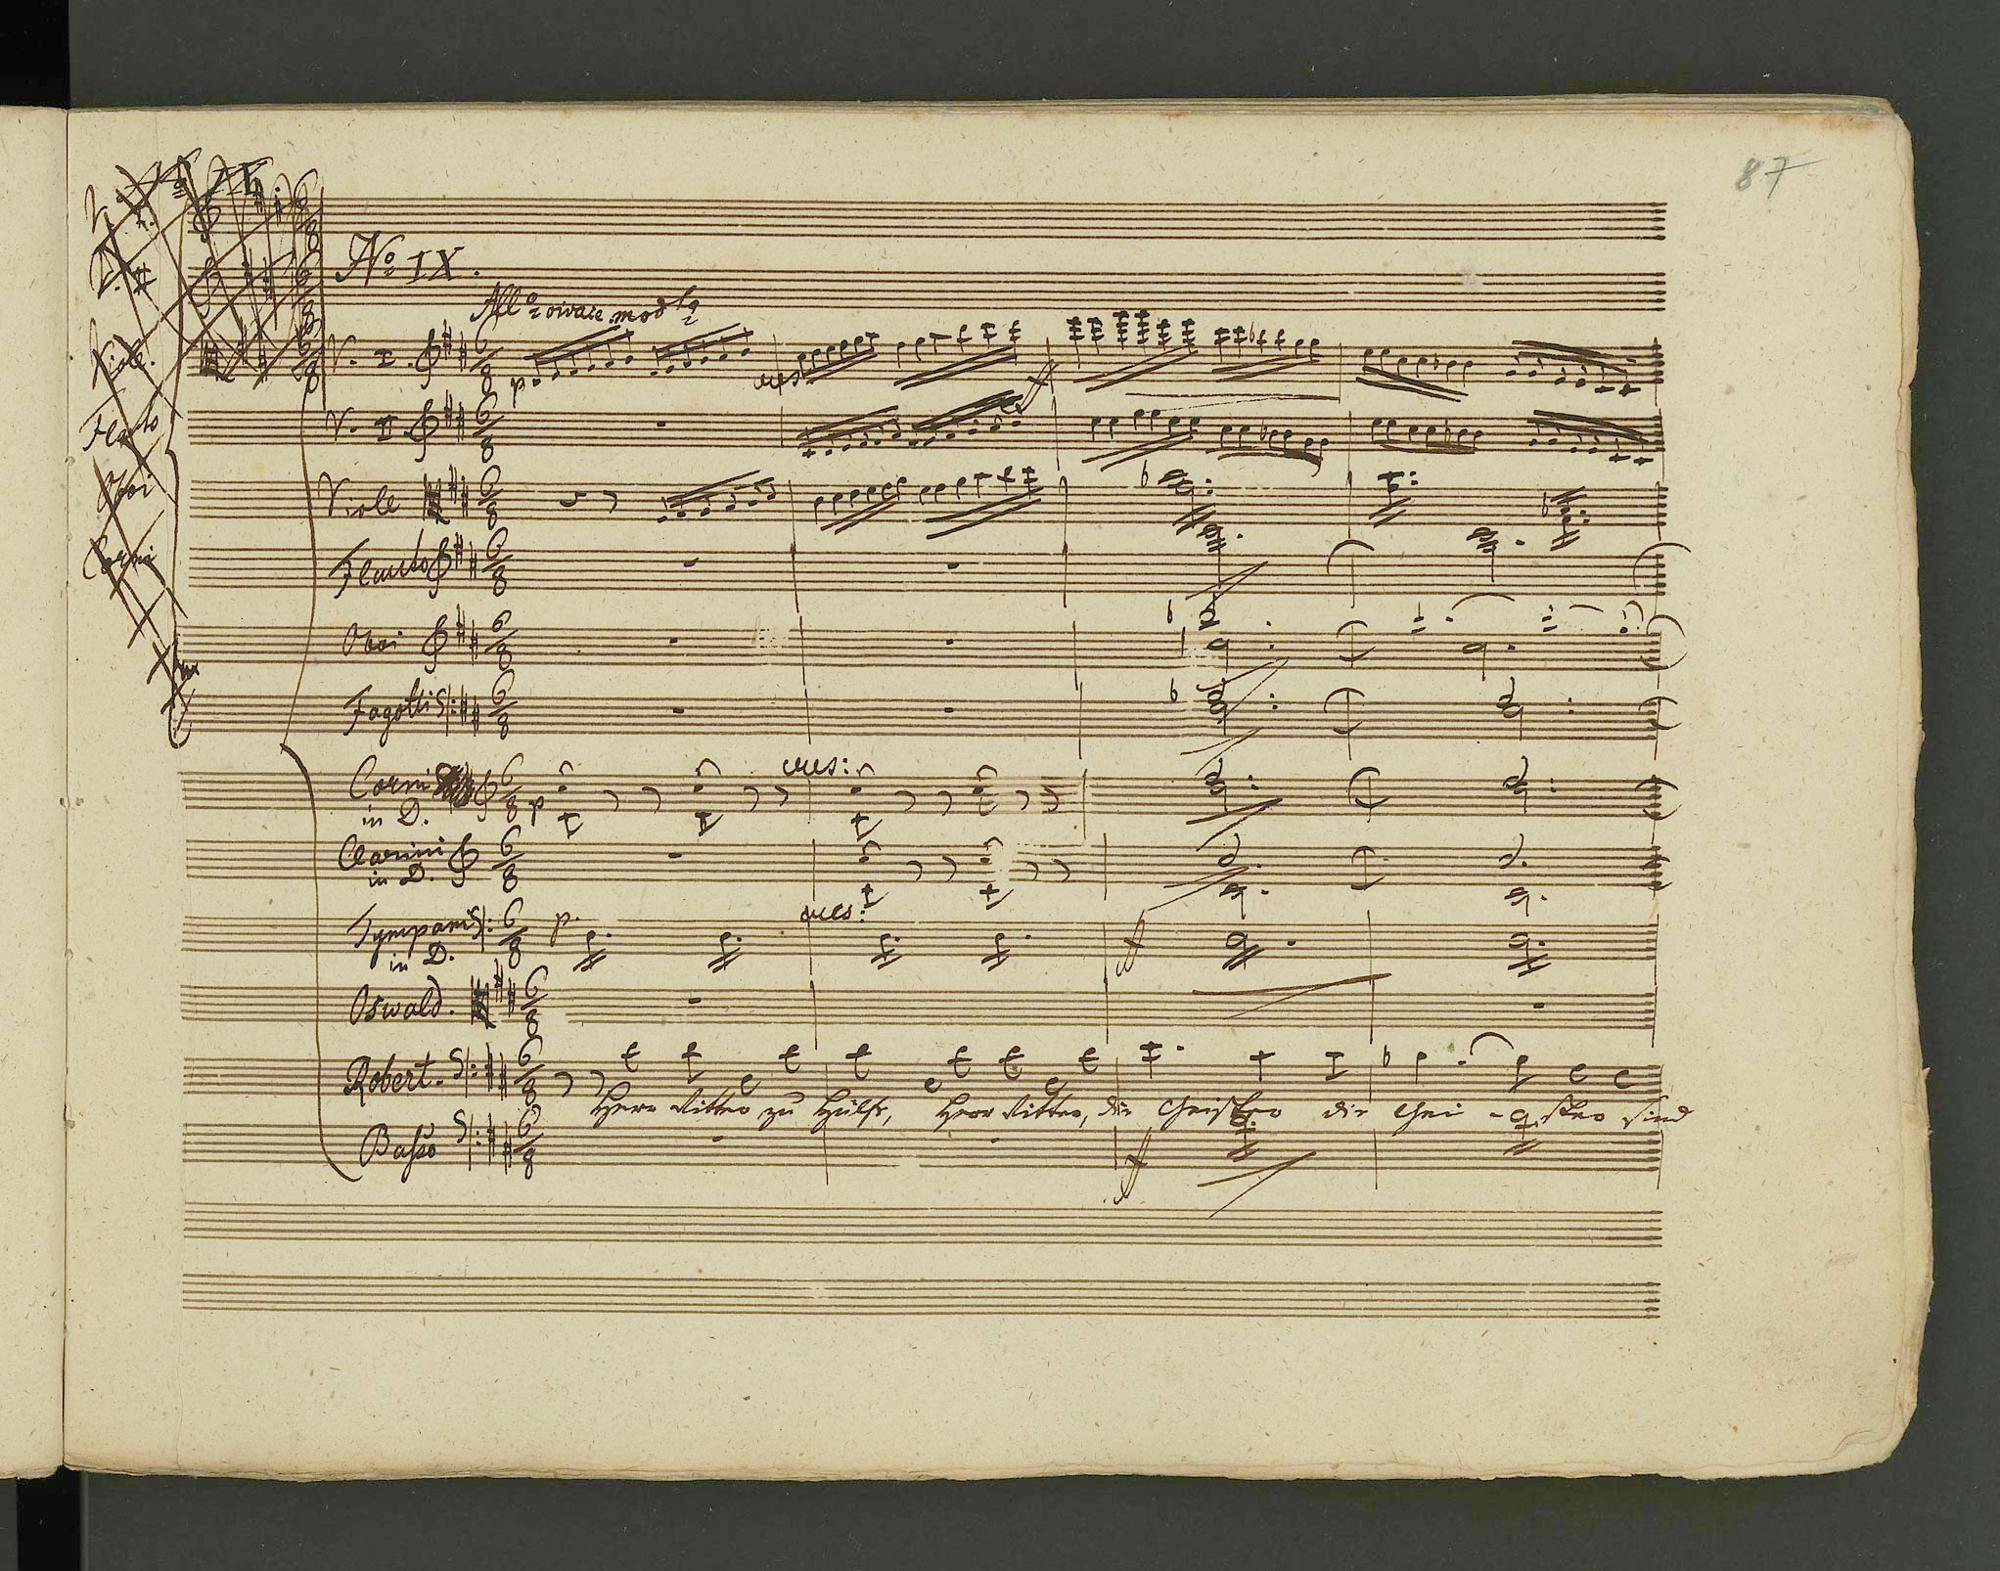 87
No IX.
Allo vivace modto
V. I.
p
cres
ff
V. II.
Viole
Viole.
Flauto
Flauto
Oboi
Oboi
Corni
Fagotti
Corni
in D.
p
cres:
Clarini
in D.
Tympani
in D.
p.
cres:
ff
Oswald.
Robert.
Herr Ritter zu Hülfe, Herr Ritter, die Geister die Gei - ster sind
Basso
ff